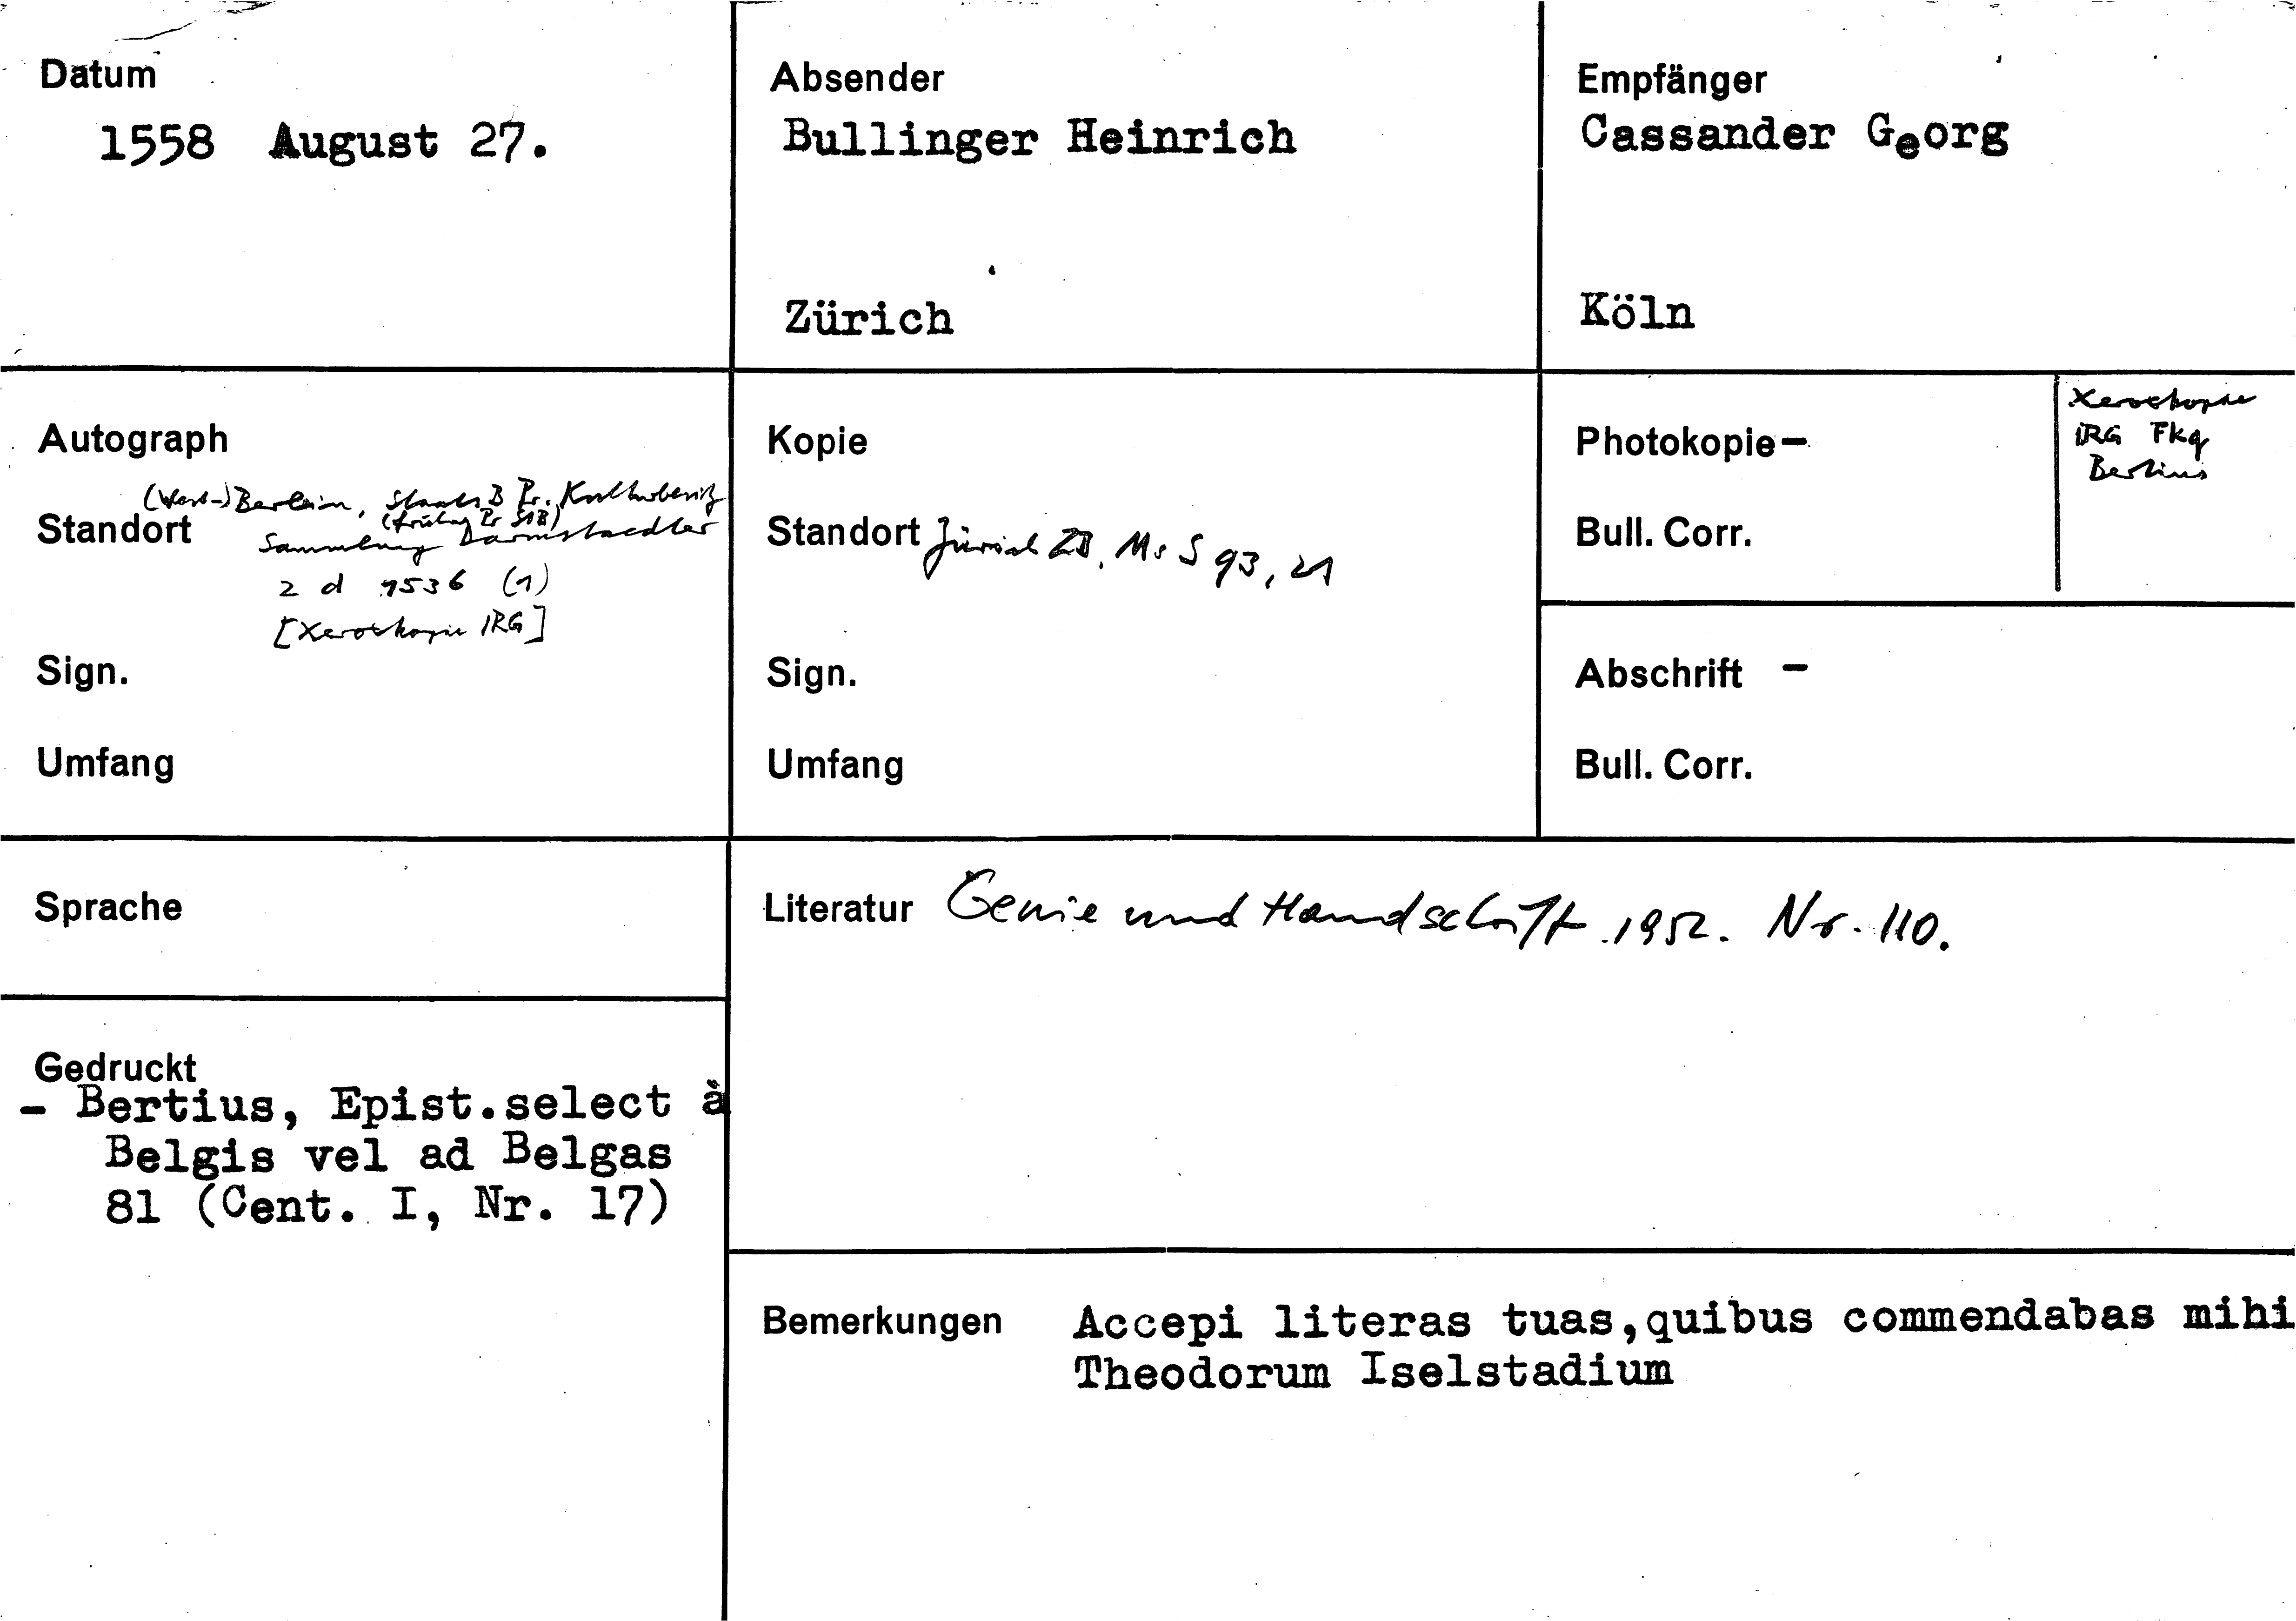 Datum
1558 August 27.
Absender
Bullinger Heinrich
Zürich
Empfänger
Cassander Georg
Köln
Autograph
Standort
(West-) Berlin, Staats B Pr. Kulturbesitz
(früher Pr StB)
Sammlung Darmstaedter
2 d 1536 (1)
[Xerokopie IRG]
Sign.
Umfang
Kopie
Standort Zürich ZB, Ms S 93, 21
Sign.
Umfang
Photokopie -
Bull. Corr.
Xerokopie
IRG Fkq
Bertius
Abschrift -
Bull. Corr.
Sprache
Literatur Genie und Handschrift 1952. Nr. 110.
Gedruckt
- Bertius, Epist.select à
Belgis vel ad Belgas
81 (Cent. I, Nr. 17)
Bemerkungen Accepi literas tuas,quibus commendabas mihi
Theodorum Iselstadium